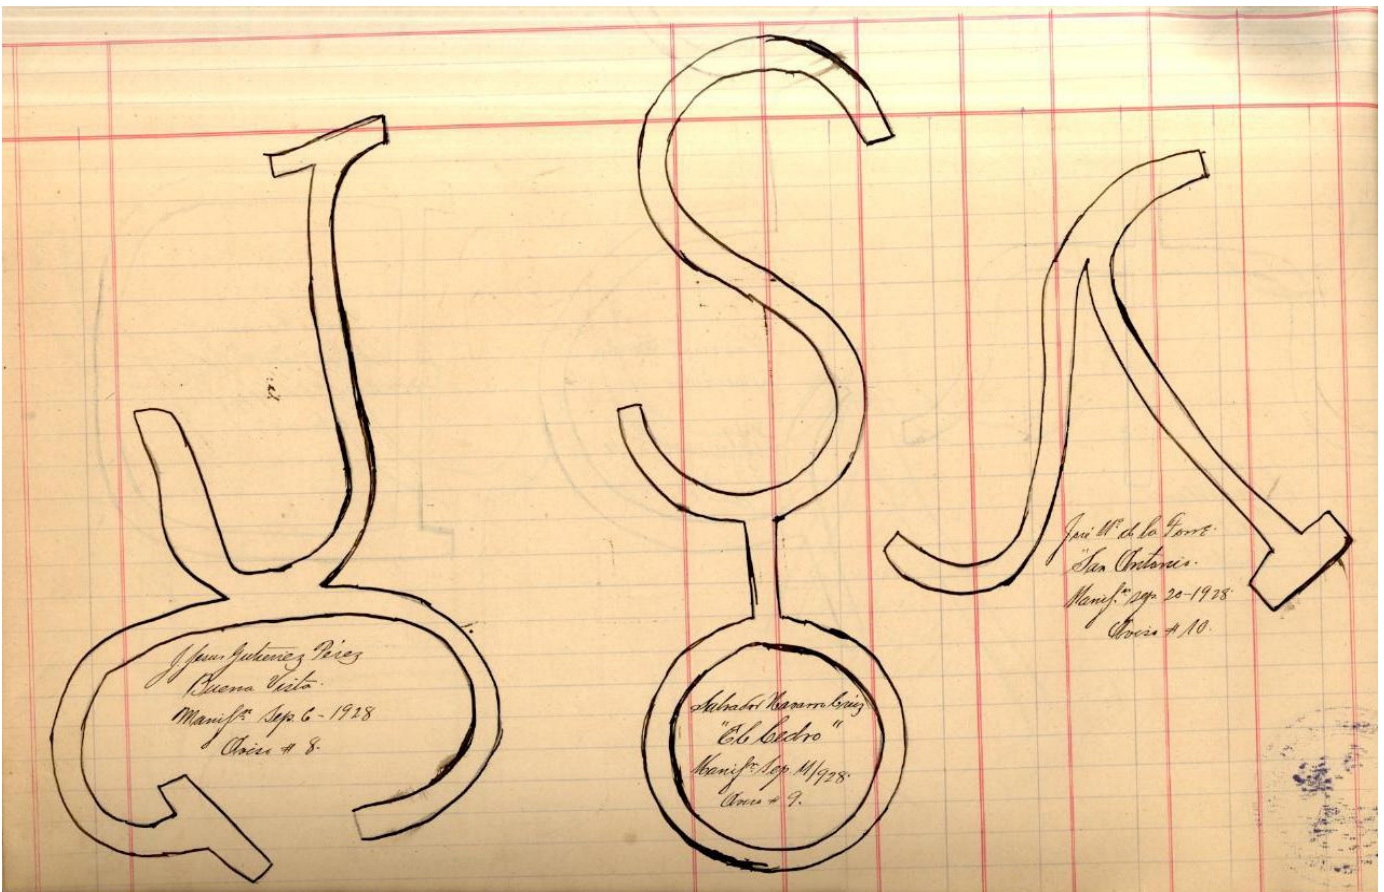 J. Jesus Gutierrez Pérez
Buena Vista.
Manifón Sep. 6 - 1928
Aviso # 8.
Salvador Navarro
"El Cedro"
Manifón Sep. 11/928.
Aviso # 9.
José Ma. de la Torre.
"San Antonio.
Manifón sep. 20-1928
Aviso # 10.